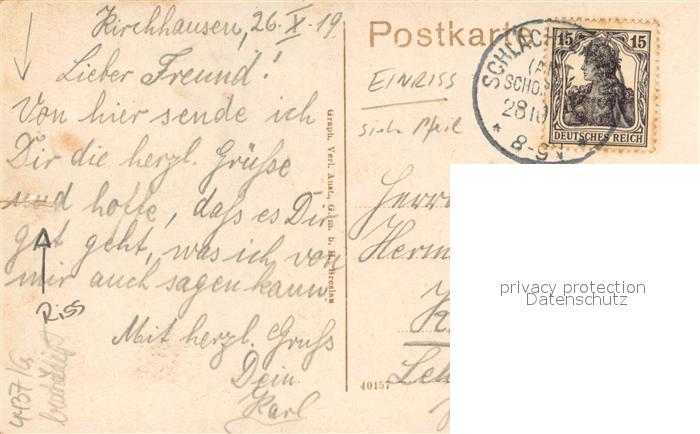 Kirchhausen, 26. X. 19
Lieber Freund!
Von hier sende ich
Dir die herzl. Grüße
und hoffe, dass es Dir
gut geht, was ich von
mir auch sagen kann.
Mit herzl. Gruss
Dein
Karl
Riss
4437/G
Graph. Verl. Anst., G. m. b. H. Breslau
40157
Postkarte
EINRISS
siehe Pfeil
SCHLACH
SCHO
28 10
8-9
15 15
DEUTSCHES REICH
Herrn
Herm
privacy protection
Datenschutz